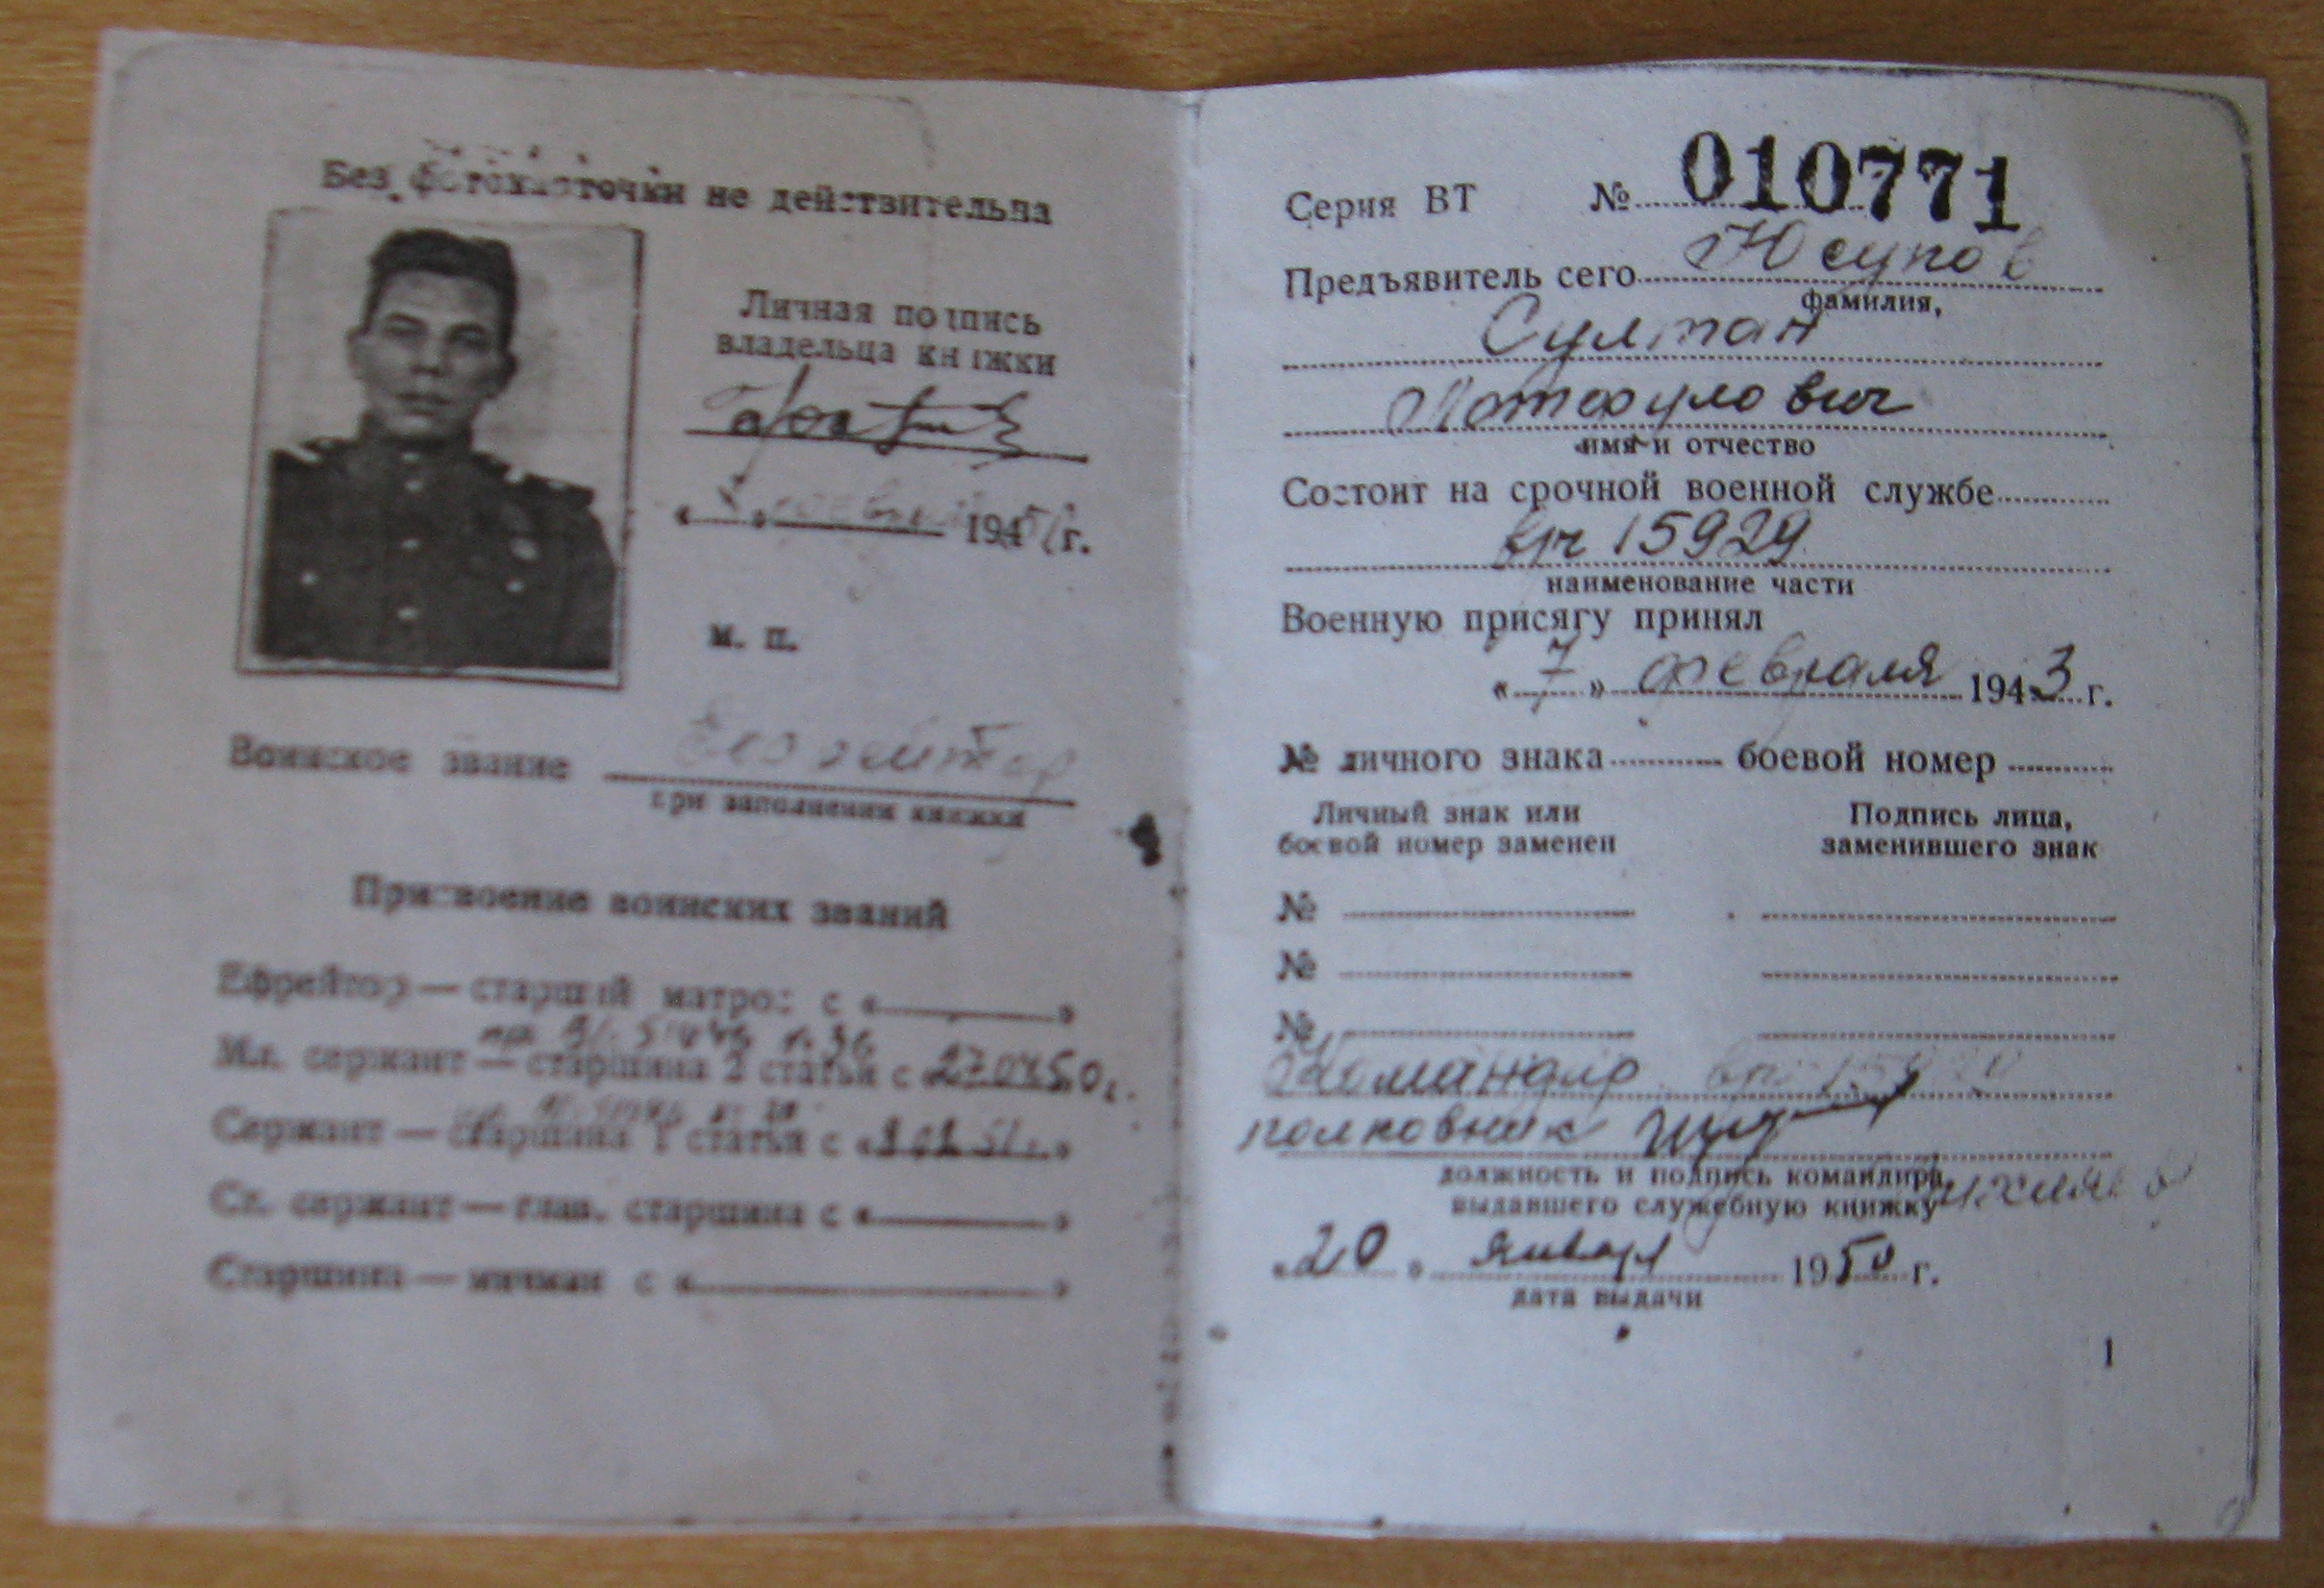 Без фотокарточки не действительна
Личная подпись
владельца книжки
« » 195 г.
м. п.
Воинское звание Ефрейтор
при заполнении книжки
Присвоение воинских званий
Ефрейтор — старший матрос с « »
Мл. сержант — старшина 2 статьи с 270450г.
Сержант — старшина 1 статьи с « »
Ст. сержант — глав. старшина с « »
Старшина — мичман с « »
Серия ВТ № 010771
Предъявитель сего Юсупов
фамилия,
Султан
имя и отчество
Состоит на срочной военной службе
в/ч 15929
наименование части
Военную присягу принял
« 7 » февраля 1943 г.
№ личного знака боевой номер
Личный знак или
боевой номер заменен
Подпись лица,
заменившего знак
№
№
№
Командир в/ч
полковник
должность и подпись командира,
выдавшего служебную книжку
« 20 » января 1950 г.
дата выдачи
1